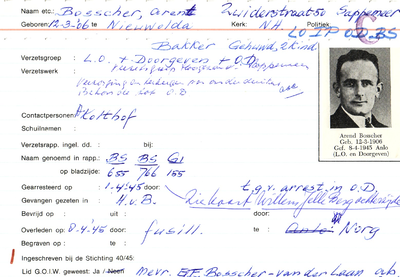 Naam etc.: Bosscher, Arent Zuiderstraat 50 Sappemeer
Geboren: 12-3-'06 te Nieuwolda Kerk: N.H. Politiek
LO IP O.D. BS
Bakker Gehuwd, 2 kind
Verzetsgroep : L.O. + Doorgeven + O.D.
Verzetswerk :
O.D.
Contactpersonen: Kolthof
Schuilnaam :
Verzetsrapp. ingel. dd. : bij:
Naam genoemd in rapp.: BS BS G1
op bladzijde: 655 766 155
Arend Bosscher
Geb. 12-3-1906
Gef. 8-4-1945 Anlo
(L.O. en Doorgeven)
Gearresteerd op : 1.4.45 door: t.g.v. arrest. in O.D.
Gevangen gezeten in : H.v.B.
Bevrijd op : uit : door:
Overleden op: 8.4.'45 door: fusill. te: Anlo Norg
Begraven op : te :
Ingeschreven bij de Stichting 40/45:
Lid G.O.I.W. geweest: Ja / Neen mevr. Bosscher-van der Laan